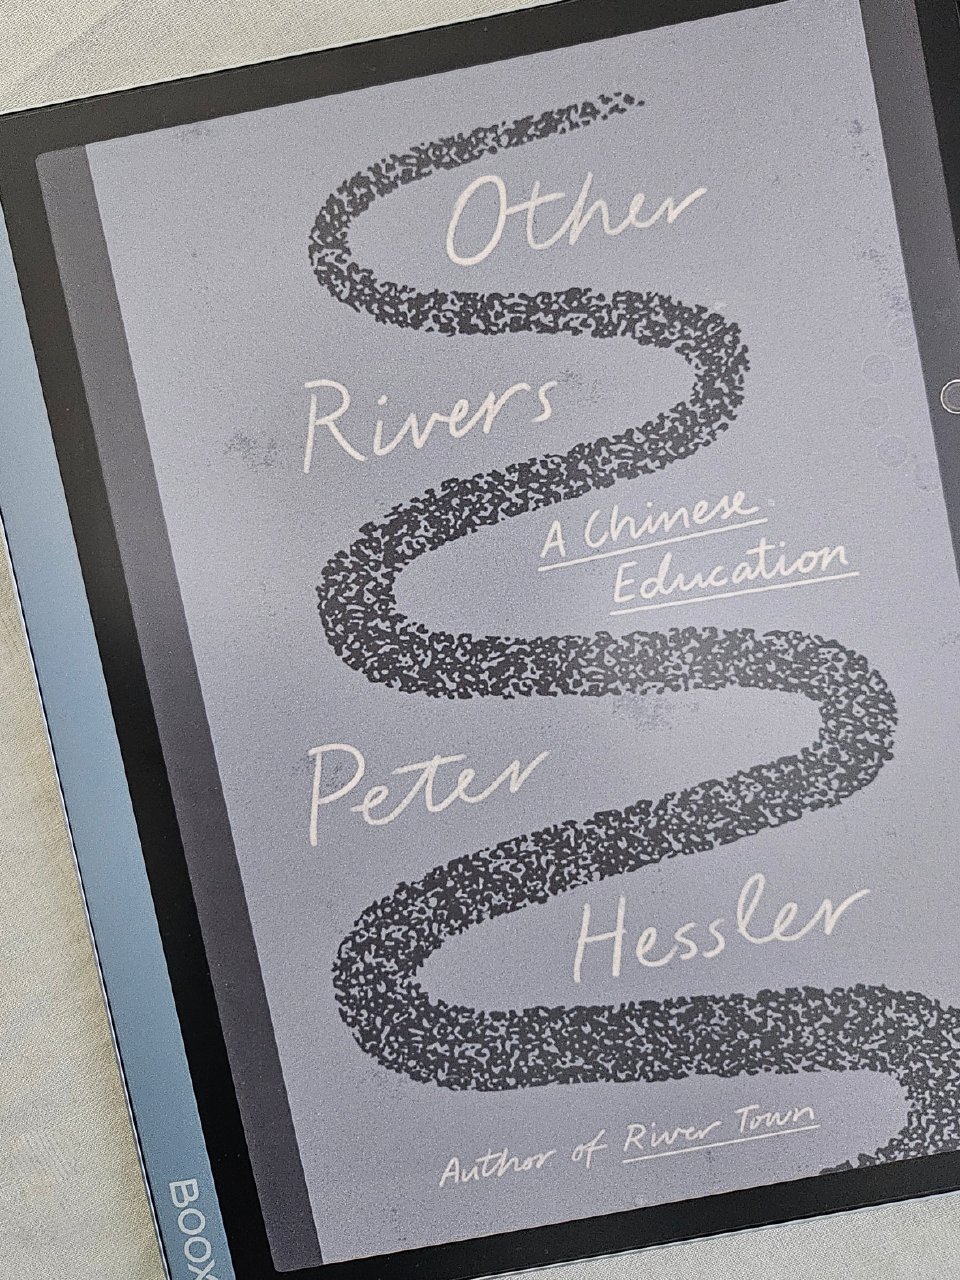 Other
Rivers
A Chinese
Education
Peter
Hessler
Author of River Town
BOOX